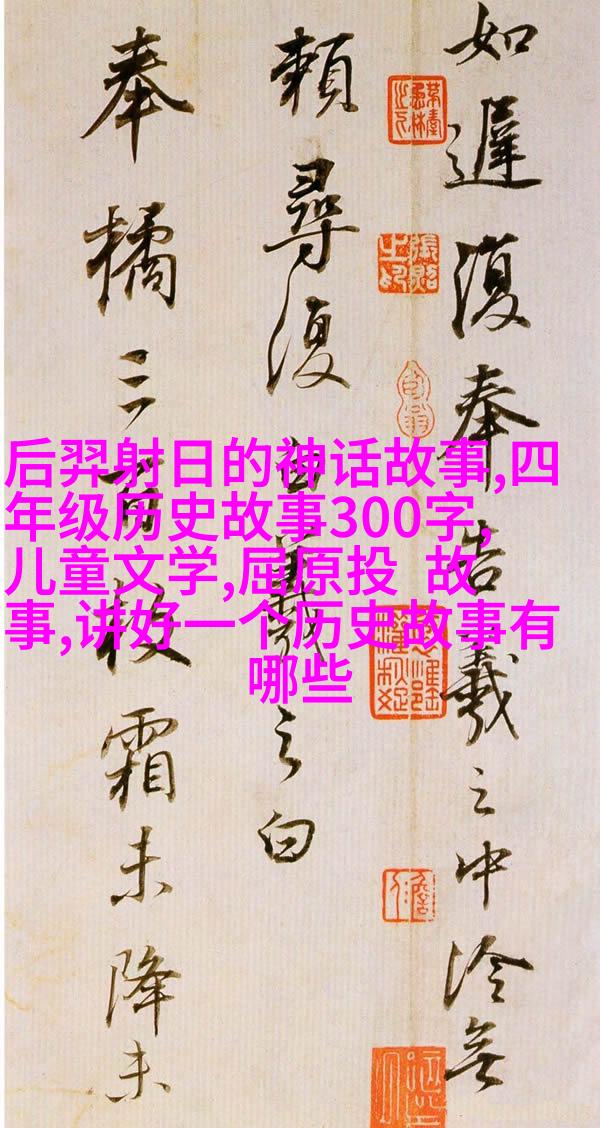 后羿射日的神话故事,四
年级历史故事300字,
儿童文学,屈原投 故
事,讲好一个历史故事有
哪些
如遲復奉告羲之中冷無
賴尋復白羲之白
奉橘三百枚霜未降未